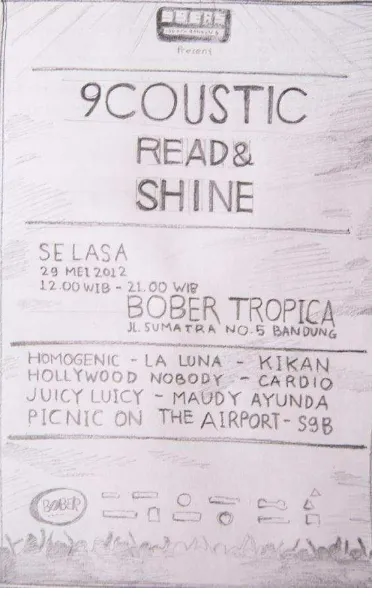 Present
9COUSTIC
READ&
SHINE
SELASA
29 MEI 2012
12.00 WIB - 21.00 WIB
BOBER TROPICA
JL.SUMATRA NO.5 BANDUNG
HOMOGENIC - LA LUNA - KIKAN
HOLLYWOOD NOBODY - CARDIO
JUICY LUICY - MAUDY AYUNDA
PICNIC ON THE AIRPORT - S9B
BOBER